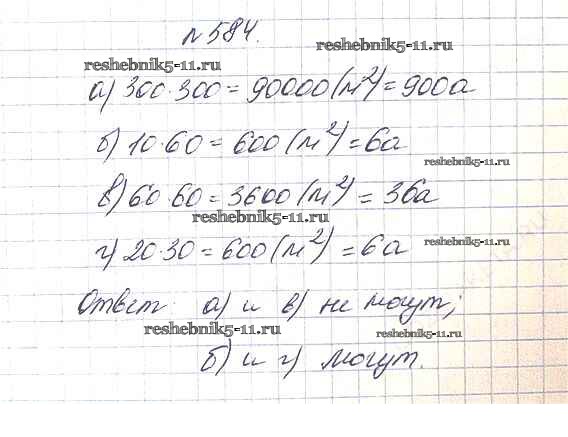 №584.
reshebnik5-11.ru
reshebnik5-11.ru
а) 300·300 = 90000 (м²) = 900а
б) 10·60 = 600 (м²) = 6а
reshebnik5-11.ru
в) 60·60 = 3600 (м²) = 36а
reshebnik5-11.ru
г) 20·30 = 600 (м²) = 6а
reshebnik5-11.ru
Ответ: а) и в) не могут;
reshebnik5-11.ru
reshebnik5-11.ru
б) и г) могут.